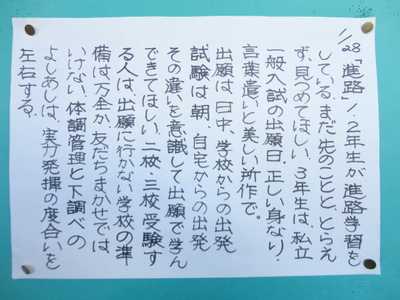 11/28「進路」1・2年生が進路学習を
している。まだ先のことと、とらえ
ず、見つめてほしい。3年生は、私立
一般入試の出願日。正しい身なり・
言葉遣いと美しい所作で。
出願は日中、学校からの出発
試験は朝、自宅からの出発
その違いを意識して出願で学ん
できてほしい。二校・三校受験す
る人は、出願に行かない学校の準
備は万全か。友だちまかせでは、
いけない。体調管理と下調べの
よしあしは、実力発揮の度合いを
左右する。